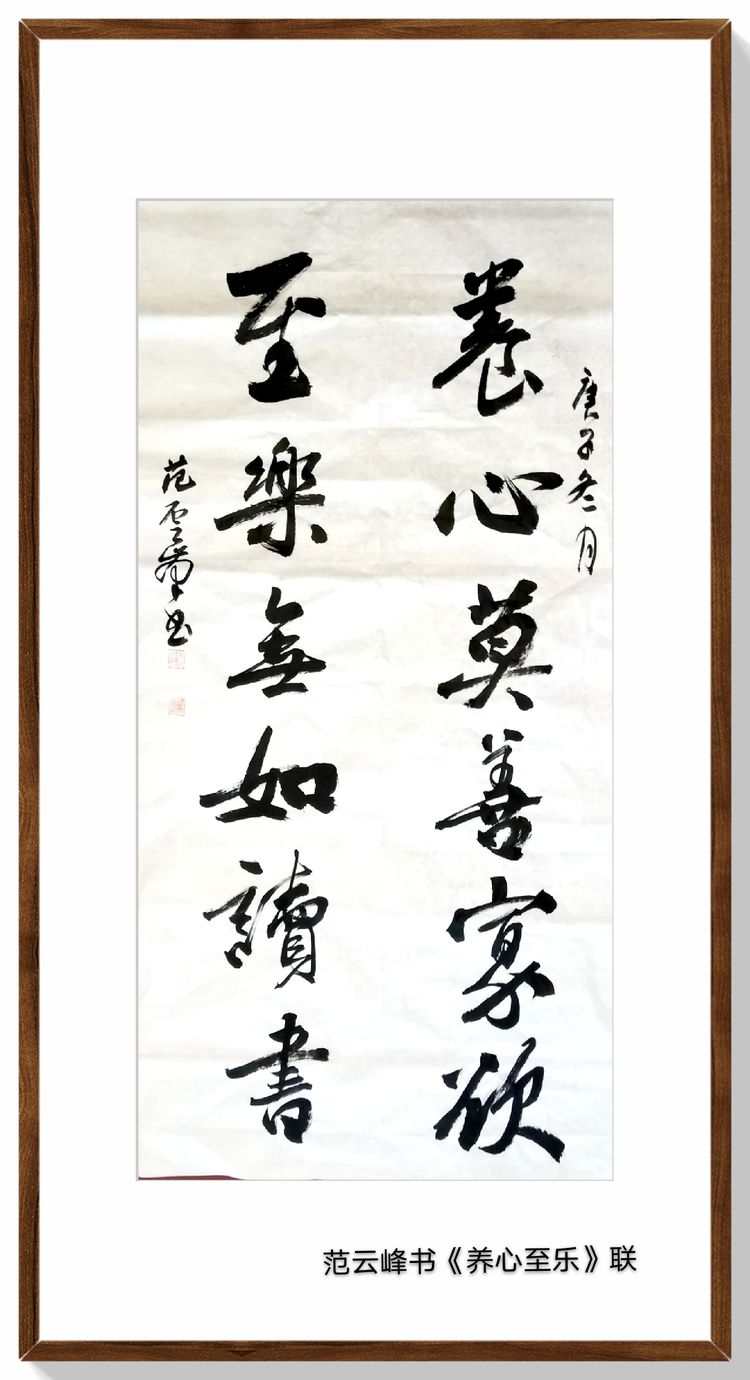 庚子冬月
養心莫善寡欲
至樂無如讀書
范雲峯书
范云峰书《养心至乐》联